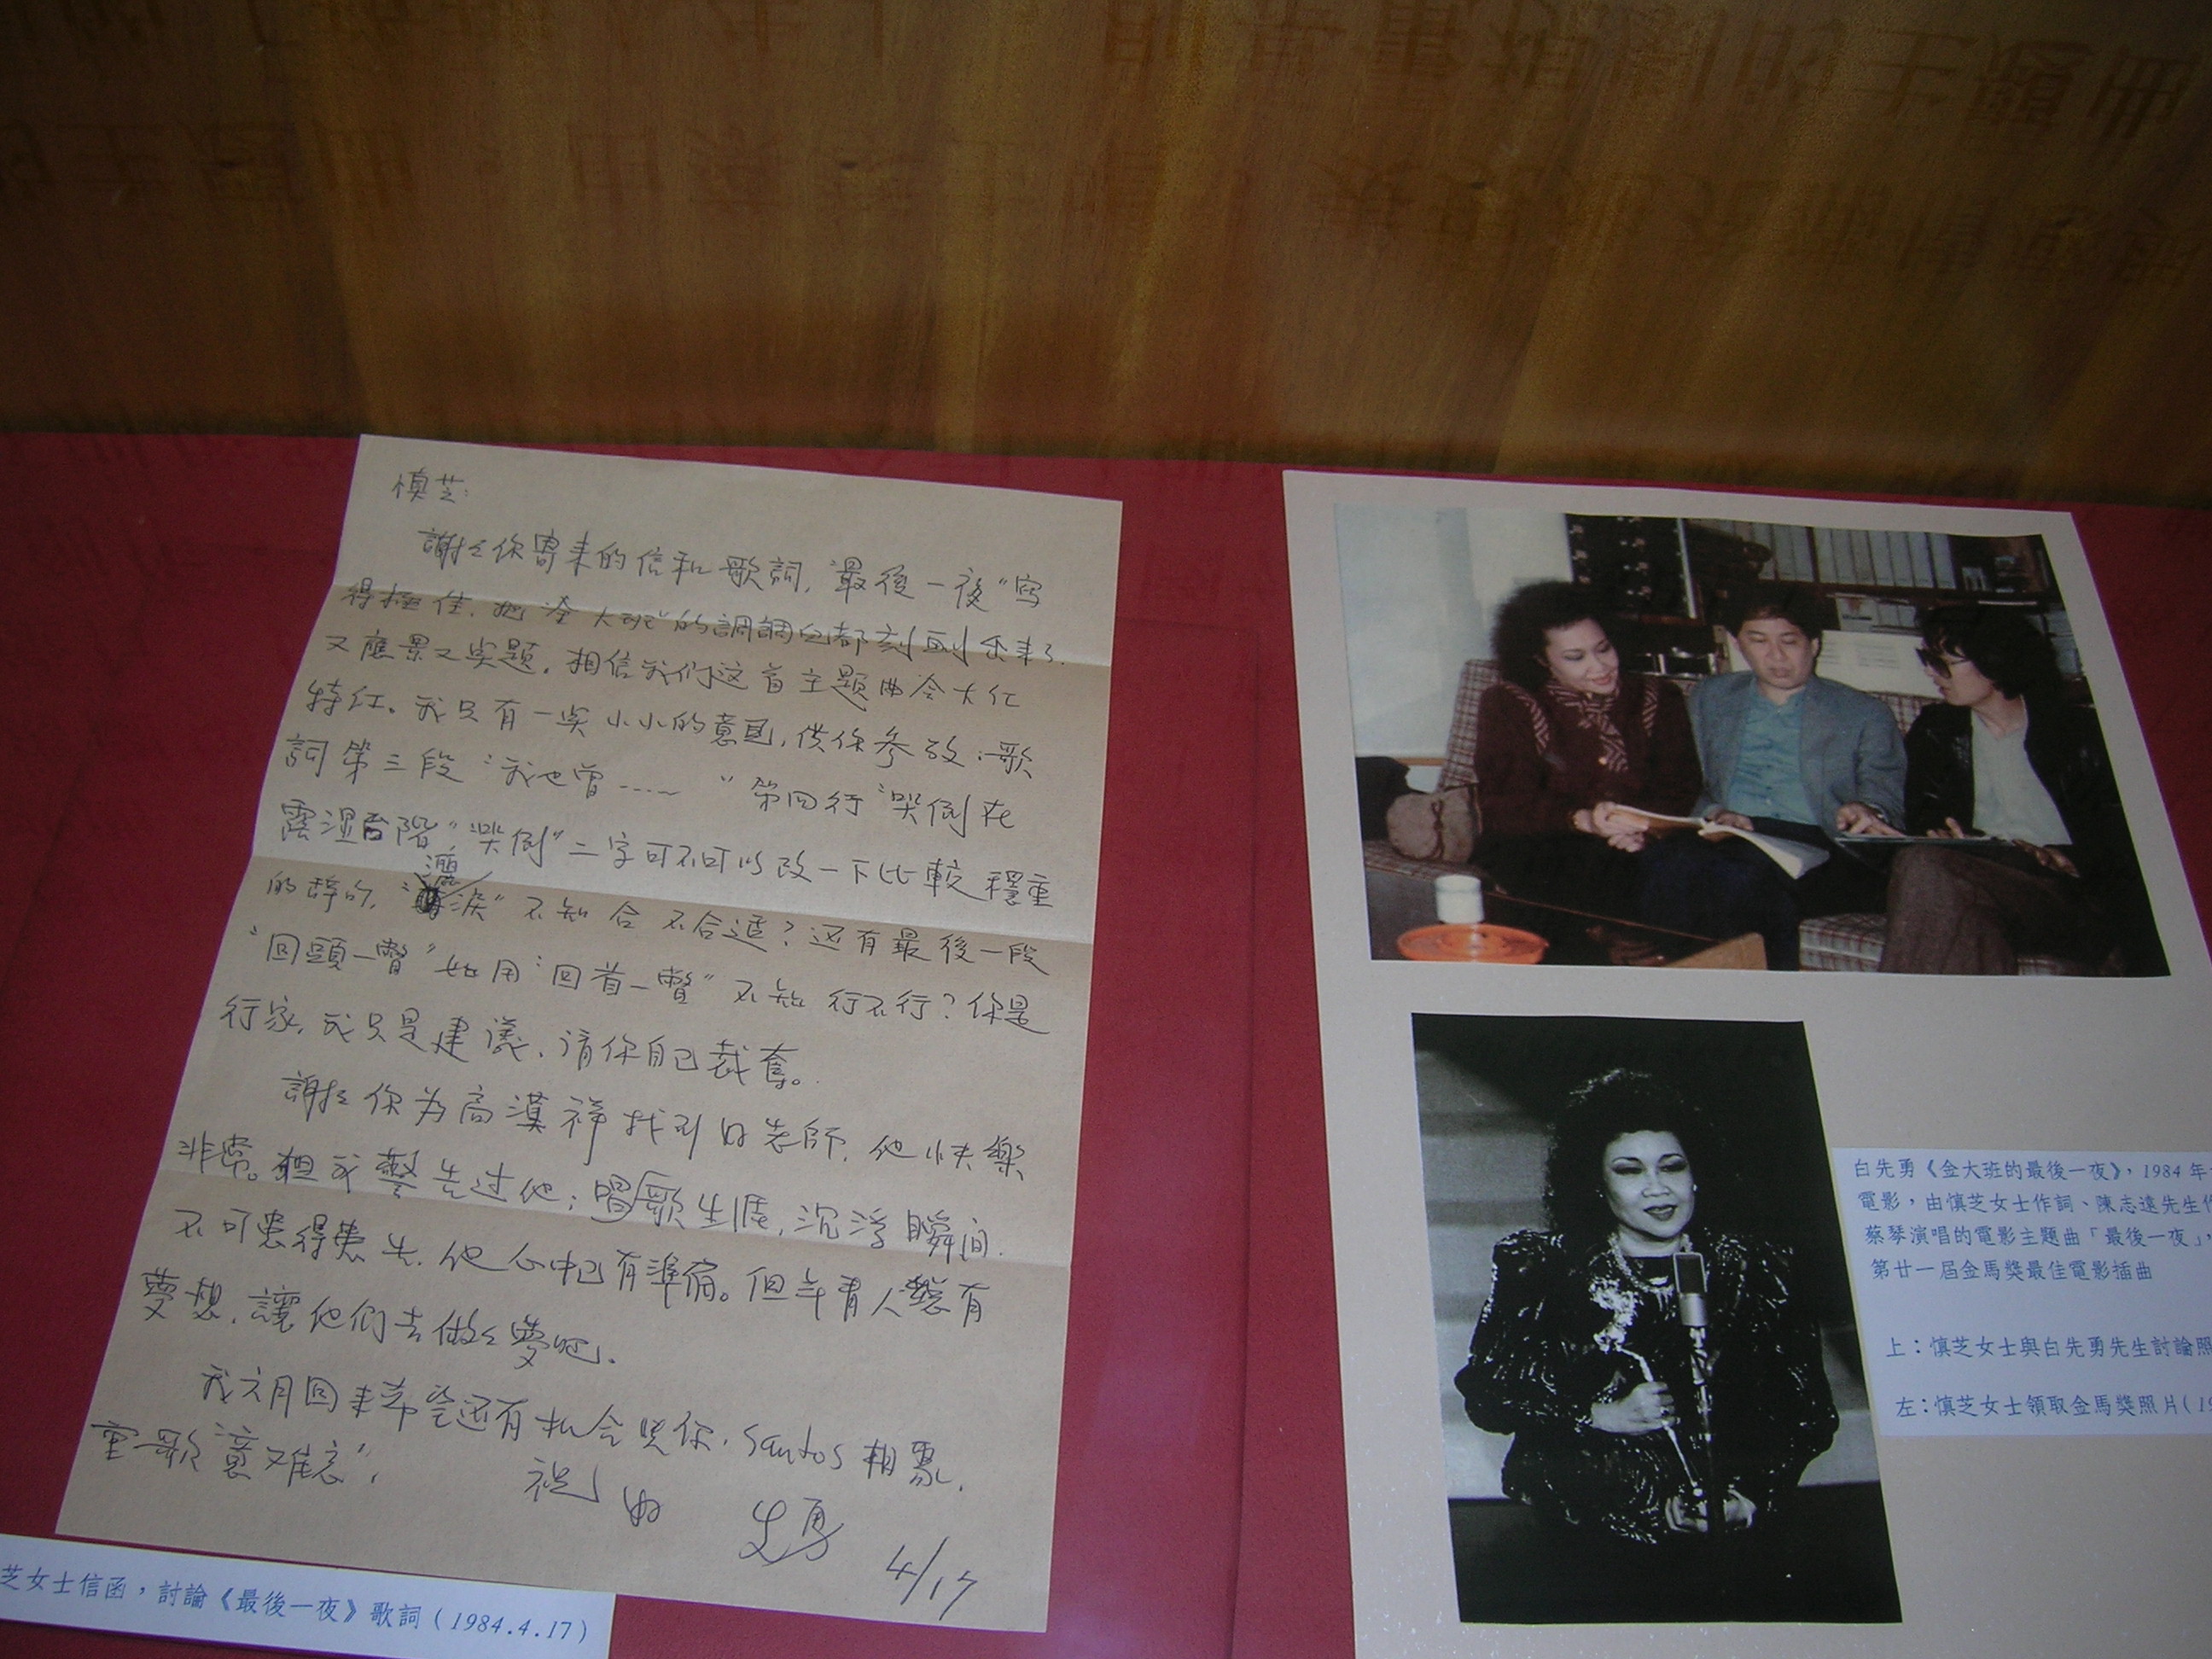 慎芝：
謝々你寄来的信和歌詞，"最後一夜"寫
得極佳，把"金大班"的調調兒都刻劃出来了，
又應景又点題，相信我们这首主題曲会大红
特红。我只有一点小小的意見，供你参攷：歌
詞第三段"我也曾……"第四行"哭倒在
露湿台階"，"哭倒"二字可不可以改一下比較穩重
的辞句，"灑淚"不知合不合适？还有最後一段
"回頭一瞥"如用"回首一瞥"不知行不行？你是
行家，我只是建議，请你自己裁奪。
謝々你为高漢祥找到好老師，他快樂
非常。但我警告过他：唱歌生涯，沉浮瞬间，
不可患得患失，他心中已有準備。但年青人總有
夢想，讓他们去做々夢吧。
我六月回来希望还有机会児你，Santos相聚，
重歌"意难忘"。
祝好
先勇
4/17
芝女士信函，討論《最後一夜》歌詞（1984.4.17）
白先勇《金大班的最後一夜》，1984年
電影，由慎芝女士作詞、陳志遠先生作
蔡琴演唱的電影主題曲「最後一夜」，
第廿一屆金馬獎最佳電影插曲
上：慎芝女士與白先勇先生討論照
左：慎芝女士領取金馬獎照片（19